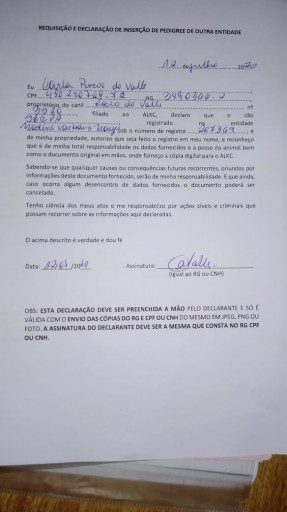 REQUISIÇÃO E DECLARAÇÃO DE INSERÇÃO DE PEDIGREE DE OUTRA ENTIDADE
12 2020
Eu do Valle
CPF RG
proprietário do canil do Valle nº
filiado ao ALKC, declaro que o cão
registrado na entidade
sob o número de registro 207369, é
de minha propriedade, autorizo que seja feito o registro em meu nome, e reconheço
que é de minha total responsabilidade os dados fornecidos e a posse do animal bem
como o documento original em mãos, onde forneço a cópia digital para o ALKC.
Sabendo-se que quaisquer causas ou consequências futuras recorrentes, oriundos por
informações deste documento fornecido, serão de minha responsabilidade. E que ainda,
caso ocorra algum desencontro de dados fornecidos o documento poderá ser
cancelado.
Tenho ciência dos meus atos e me responsabilizo por ações cíveis e criminais que
possam recorrer sobre as informações aqui declaradas.
O acima descrito é verdade e dou fé
Data: 12/07/2020 Assinatura:
(Igual ao RG ou CNH)
OBS: ESTA DECLARAÇÃO DEVE SER PREENCHIDA A MÃO PELO DECLARANTE E SÓ É
VÁLIDA COM O ENVIO DAS CÓPIAS DO RG E CPF OU CNH DO MESMO EM JPEG, PNG OU
FOTO. A ASSINATURA DO DECLARANTE DEVE SER A MESMA QUE CONSTA NO RG CPF
OU CNH.